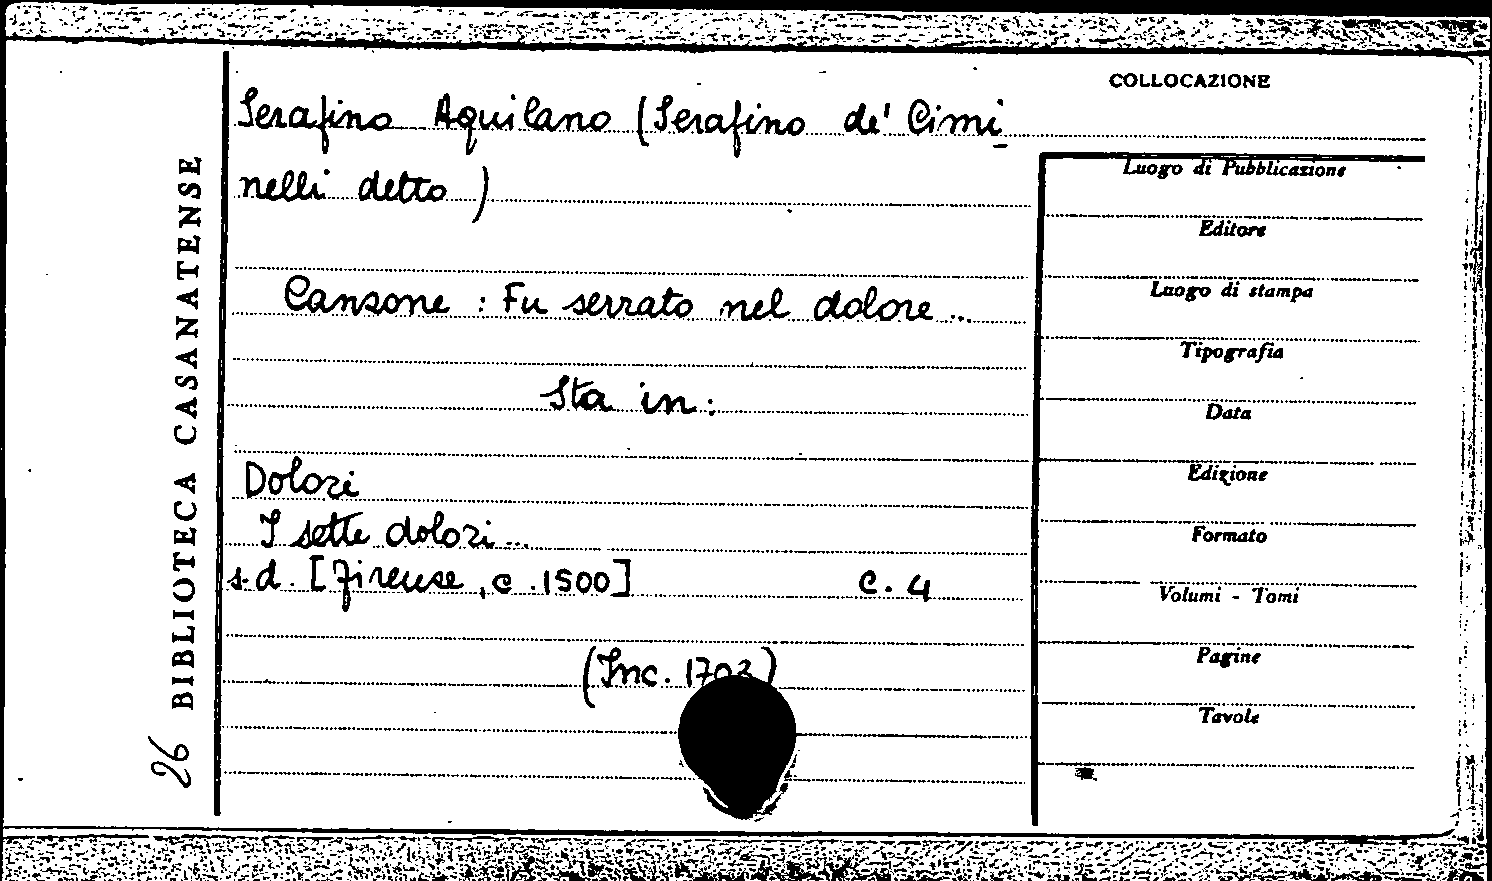 COLLOCAZIONE
Serafino Aquilano (Serafino de' Cimi
nelli detto)
Canzone : Fu serrato nel dolore ...
Sta in :
Dolori
I sette dolori ...
s.d. [Firenze, c. 1500] c. 4
(Inc. 1703)
Luogo di Pubblicazione
Editore
Luogo di stampa
Tipografia
Data
Edizione
Formato
Volumi - Tomi
Pagine
Tavole
BIBLIOTECA CASANATENSE
26